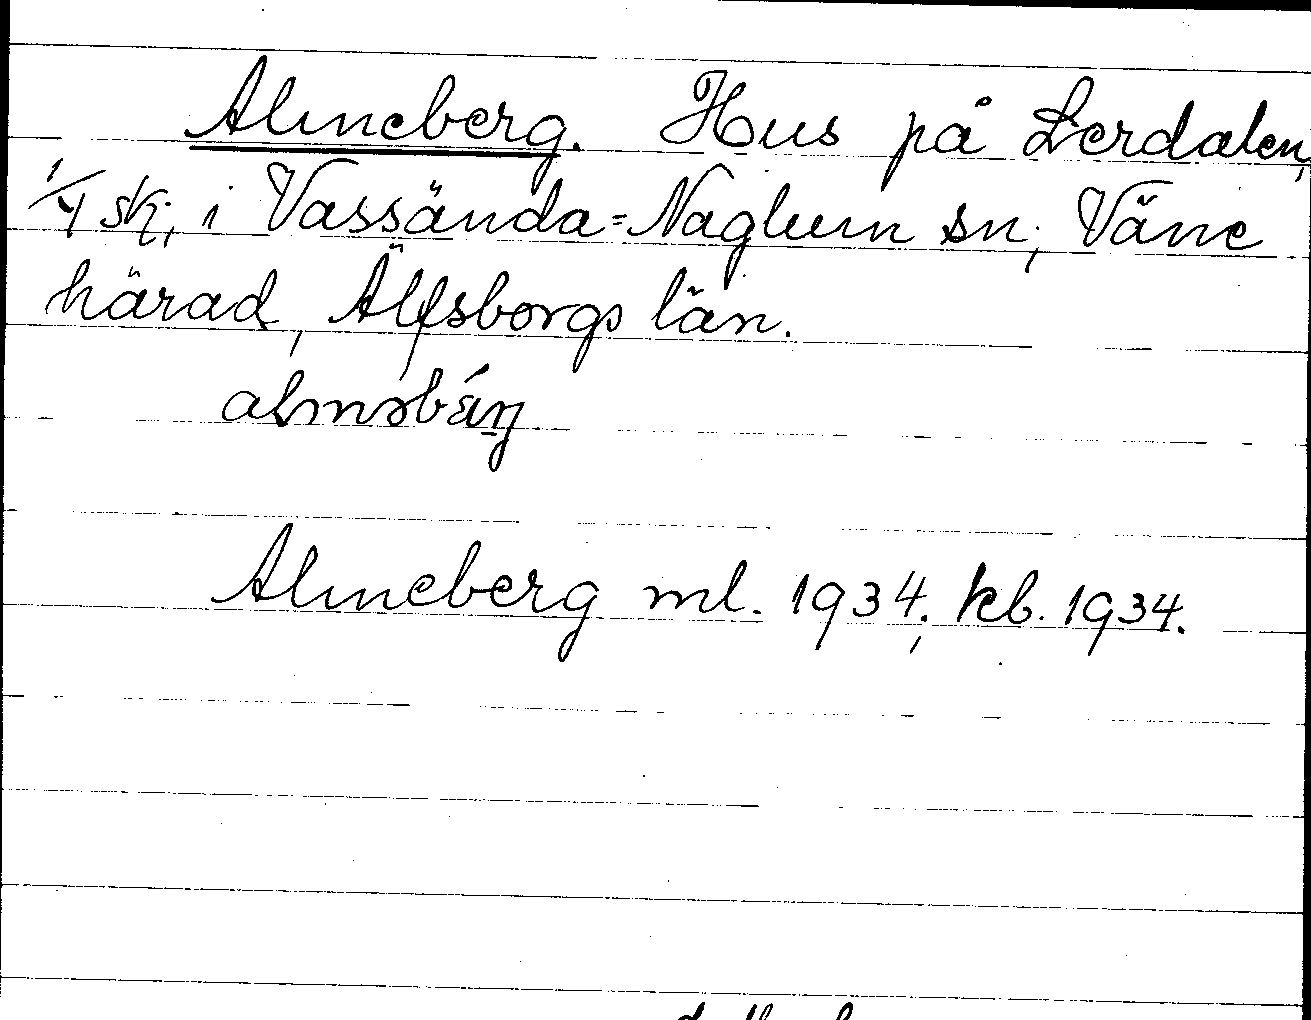 Almeberg. Hus på Lerdalen,
1/4 skj, i Vassända-Naglum sn, Väne
härad, Älfsborgs län.
Almeberg ml. 1934; kb. 1934.